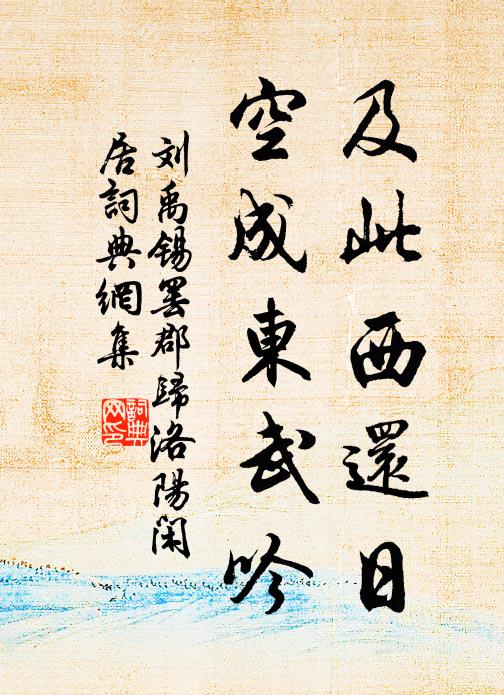 及此西還日
空成東武吟
刘禹锡罢郡歸洛陽閑
居詞典網集
詞典
网印